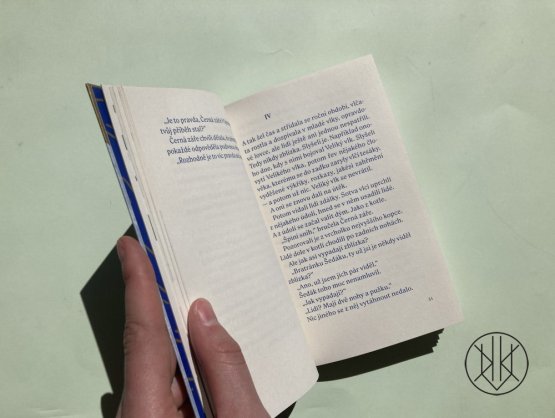 „Je to pravda, Černá záře?
tvůj příběh stal?“
Černá záře chvíli
pokaždé odpověděla
„Rozhodně je to víc
IV
A tak šel čas a střídala se roční období, vlča-
ta rostla a dospívala v mladé vlky, opravdo-
vé lovce, ale lidi ještě ani jednou nespatřili.
Tedy nikdy zblízka. Slyšeli je. Například ono-
ho dne, kdy s nimi bojoval Veliký vlk. Slyšeli
vytí Velikého vlka, potom řev nějakého člo-
věka, kterému se do zadku zaryly vlčí tesáky,
vyděšené výkřiky, rozkazy, jakési zaštěnění
– a potom už nic. Veliký vlk se nevrátil.
A oni se znovu dali na útěk.
Potom vídali lidi zdálky. Sotva vlci uprchli
z nějakého údolí, hned se v něm usadili lidé.
A z údolí se začal valit dým. Jako z kotle.
„Špiní sníh,“ bručela Černá záře.
Pozorovali je z vrcholku nejvyššího kopce.
Lidé dole v kotli chodili po zadních nohách.
Ale jak asi vypadají zblízka?
„Bratránku Šedáku, ty už jsi je někdy viděl
zblízka?“
„Ano, už jsem jich pár viděl.“
Šedák toho moc nenamluvil.
„Jak vypadají?“
„Lidi? Mají dvě nohy a pušku.“
Nic jiného se z něj vytáhnout nedalo.